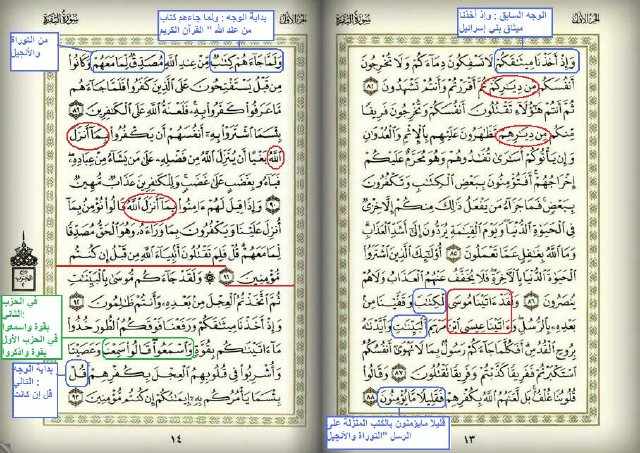 الجزء الأول
سورة البقرة
الوجه السابق : وإذ أخذنا
ميثاق بني إسرائيل
وَإِذْ أَخَذْنَا مِيثَٰقَكُمْ لَا تَسْفِكُونَ دِمَآءَكُمْ وَلَا تُخْرِجُونَ
أَنفُسَكُم مِّن دِيَٰرِكُمْ ثُمَّ أَقْرَرْتُمْ وَأَنتُمْ تَشْهَدُونَ ٨٤
ثُمَّ أَنتُمْ هَٰٓؤُلَآءِ تَقْتُلُونَ أَنفُسَكُمْ وَتُخْرِجُونَ فَرِيقًا
مِّنكُم مِّن دِيَٰرِهِمْ تَظَٰهَرُونَ عَلَيْهِم بِٱلْإِثْمِ وَٱلْعُدْوَٰنِ
وَإِن يَأْتُوكُمْ أُسَٰرَىٰ تُفَٰدُوهُمْ وَهُوَ مُحَرَّمٌ عَلَيْكُمْ
إِخْرَاجُهُمْ أَفَتُؤْمِنُونَ بِبَعْضِ ٱلْكِتَٰبِ وَتَكْفُرُونَ
بِبَعْضٍ فَمَا جَزَآءُ مَن يَفْعَلُ ذَٰلِكَ مِنكُمْ إِلَّا خِزْىٌ
فِى ٱلْحَيَوٰةِ ٱلدُّنْيَا وَيَوْمَ ٱلْقِيَٰمَةِ يُرَدُّونَ إِلَىٰٓ أَشَدِّ ٱلْعَذَابِ
وَمَا ٱللَّهُ بِغَٰفِلٍ عَمَّا تَعْمَلُونَ ٨٥ أُو۟لَٰٓئِكَ ٱلَّذِينَ ٱشْتَرَوُا۟
ٱلْحَيَوٰةَ ٱلدُّنْيَا بِٱلْءَاخِرَةِ فَلَا يُخَفَّفُ عَنْهُمُ ٱلْعَذَابُ وَلَا هُمْ
يُنصَرُونَ ٨٦ وَلَقَدْ ءَاتَيْنَا مُوسَى ٱلْكِتَٰبَ وَقَفَّيْنَا مِنۢ
بَعْدِهِۦ بِٱلرُّسُلِ وَءَاتَيْنَا عِيسَى ٱبْنَ مَرْيَمَ ٱلْبَيِّنَٰتِ وَأَيَّدْنَٰهُ
بِرُوحِ ٱلْقُدُسِ أَفَكُلَّمَا جَآءَكُمْ رَسُولٌۢ بِمَا لَا تَهْوَىٰٓ أَنفُسُكُمُ
ٱسْتَكْبَرْتُمْ فَفَرِيقًا كَذَّبْتُمْ وَفَرِيقًا تَقْتُلُونَ ٨٧ وَقَالُوا۟
قُلُوبُنَا غُلْفٌۢ بَل لَّعَنَهُمُ ٱللَّهُ بِكُفْرِهِمْ فَقَلِيلًا مَّا يُؤْمِنُونَ ٨٨
قليلا مايؤمنون بالكتب المنزلة على
الرسل "التوراة والأنجيل
١٣
الجزء الأول
سورة البقرة
بداية الوجه : ولما جاءهم كتاب
من عند الله " القرآن الكريم
من التوراة
والأنجيل
وَلَمَّا جَآءَهُمْ كِتَٰبٌ مِّنْ عِندِ ٱللَّهِ مُصَدِّقٌ لِّمَا مَعَهُمْ وَكَانُوا۟
مِن قَبْلُ يَسْتَفْتِحُونَ عَلَى ٱلَّذِينَ كَفَرُوا۟ فَلَمَّا جَآءَهُم
مَّا عَرَفُوا۟ كَفَرُوا۟ بِهِۦ فَلَعْنَةُ ٱللَّهِ عَلَى ٱلْكَٰفِرِينَ ٨٩
بِئْسَمَا ٱشْتَرَوْا۟ بِهِۦٓ أَنفُسَهُمْ أَن يَكْفُرُوا۟ بِمَآ أَنزَلَ
ٱللَّهُ بَغْيًا أَن يُنَزِّلَ ٱللَّهُ مِن فَضْلِهِۦ عَلَىٰ مَن يَشَآءُ مِنْ عِبَادِهِۦ
فَبَآءُو بِغَضَبٍ عَلَىٰ غَضَبٍ وَلِلْكَٰفِرِينَ عَذَابٌ مُّهِينٌ
٩٠ وَإِذَا قِيلَ لَهُمْ ءَامِنُوا۟ بِمَآ أَنزَلَ ٱللَّهُ قَالُوا۟ نُؤْمِنُ بِمَآ
أُنزِلَ عَلَيْنَا وَيَكْفُرُونَ بِمَا وَرَآءَهُۥ وَهُوَ ٱلْحَقُّ مُصَدِّقًا
لِّمَا مَعَهُمْ قُلْ فَلِمَ تَقْتُلُونَ أَنۢبِيَآءَ ٱللَّهِ مِن قَبْلُ إِن كُنتُم
مُّؤْمِنِينَ ٩١ ۞ وَلَقَدْ جَآءَكُم مُّوسَىٰ بِٱلْبَيِّنَٰتِ
ثُمَّ ٱتَّخَذْتُمُ ٱلْعِجْلَ مِنۢ بَعْدِهِۦ وَأَنتُمْ ظَٰلِمُونَ ٩٢
وَإِذْ أَخَذْنَا مِيثَٰقَكُمْ وَرَفَعْنَا فَوْقَكُمُ ٱلطُّورَ خُذُوا۟
مَآ ءَاتَيْنَٰكُم بِقُوَّةٍ وَٱسْمَعُوا۟ قَالُوا۟ سَمِعْنَا وَعَصَيْنَا
وَأُشْرِبُوا۟ فِى قُلُوبِهِمُ ٱلْعِجْلَ بِكُفْرِهِمْ قُلْ
بِئْسَمَا يَأْمُرُكُم بِهِۦٓ إِيمَٰنُكُمْ إِن كُنتُم مُّؤْمِنِينَ ٩٣
في الحزب
الثاني:
بقوة واسمعوا
في الحزب الأول
بقوة واذكروا
بداية الوجه
التالي :
قل إن كانت
١٤